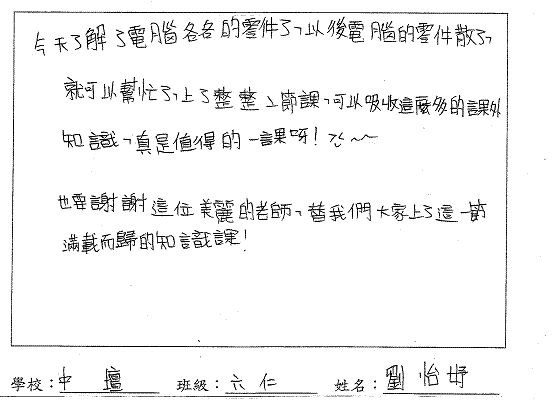 今天了解了電腦各各的零件了、以後電腦的零件散了、
就可以幫忙了、上了整整一節課、可以吸收這麼多的課外
知識、真是值得的一課呀！ㄎ~~
也要謝謝這位美麗的老師、替我們大家上了這一節
滿載而歸的知識課！
學校：中壇 班級：六仁 姓名：劉怡妤